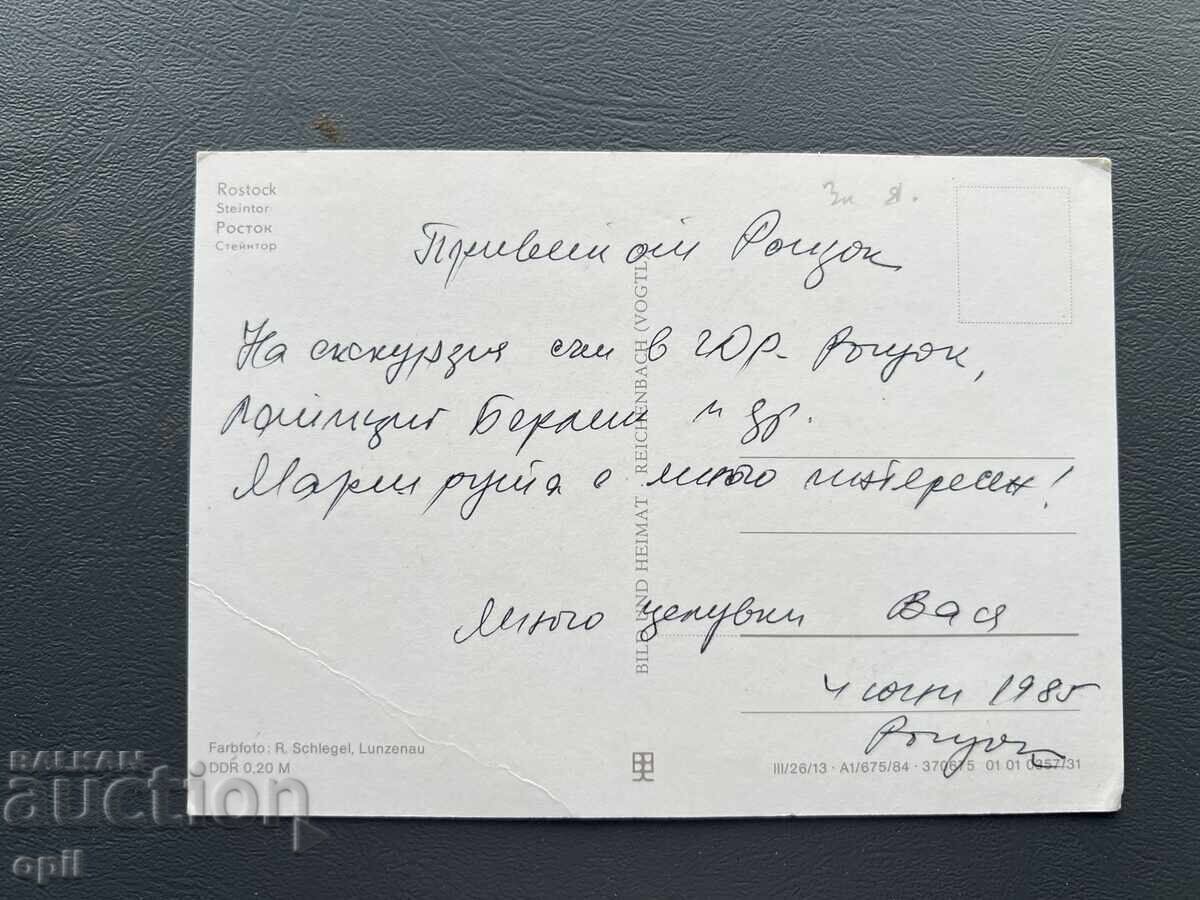 Rostock
Steintor
Росток
Стейнтор
Зп Я.
Привет от Росток
На екскурзия съм в ГДР - Росток,
Лайпциг Берлин и др.
Маршрута е много интересен!
Много целувки Вася
4 юни 1985
Росток
BILD UND HEIMAT REICHENBACH (VOGTL)
Farbfoto: R. Schlegel, Lunzenau
DDR 0,20 M
III/26/13 · A1/675/84 · 370675 01 01 0357/31
BALKAN
auction
opil